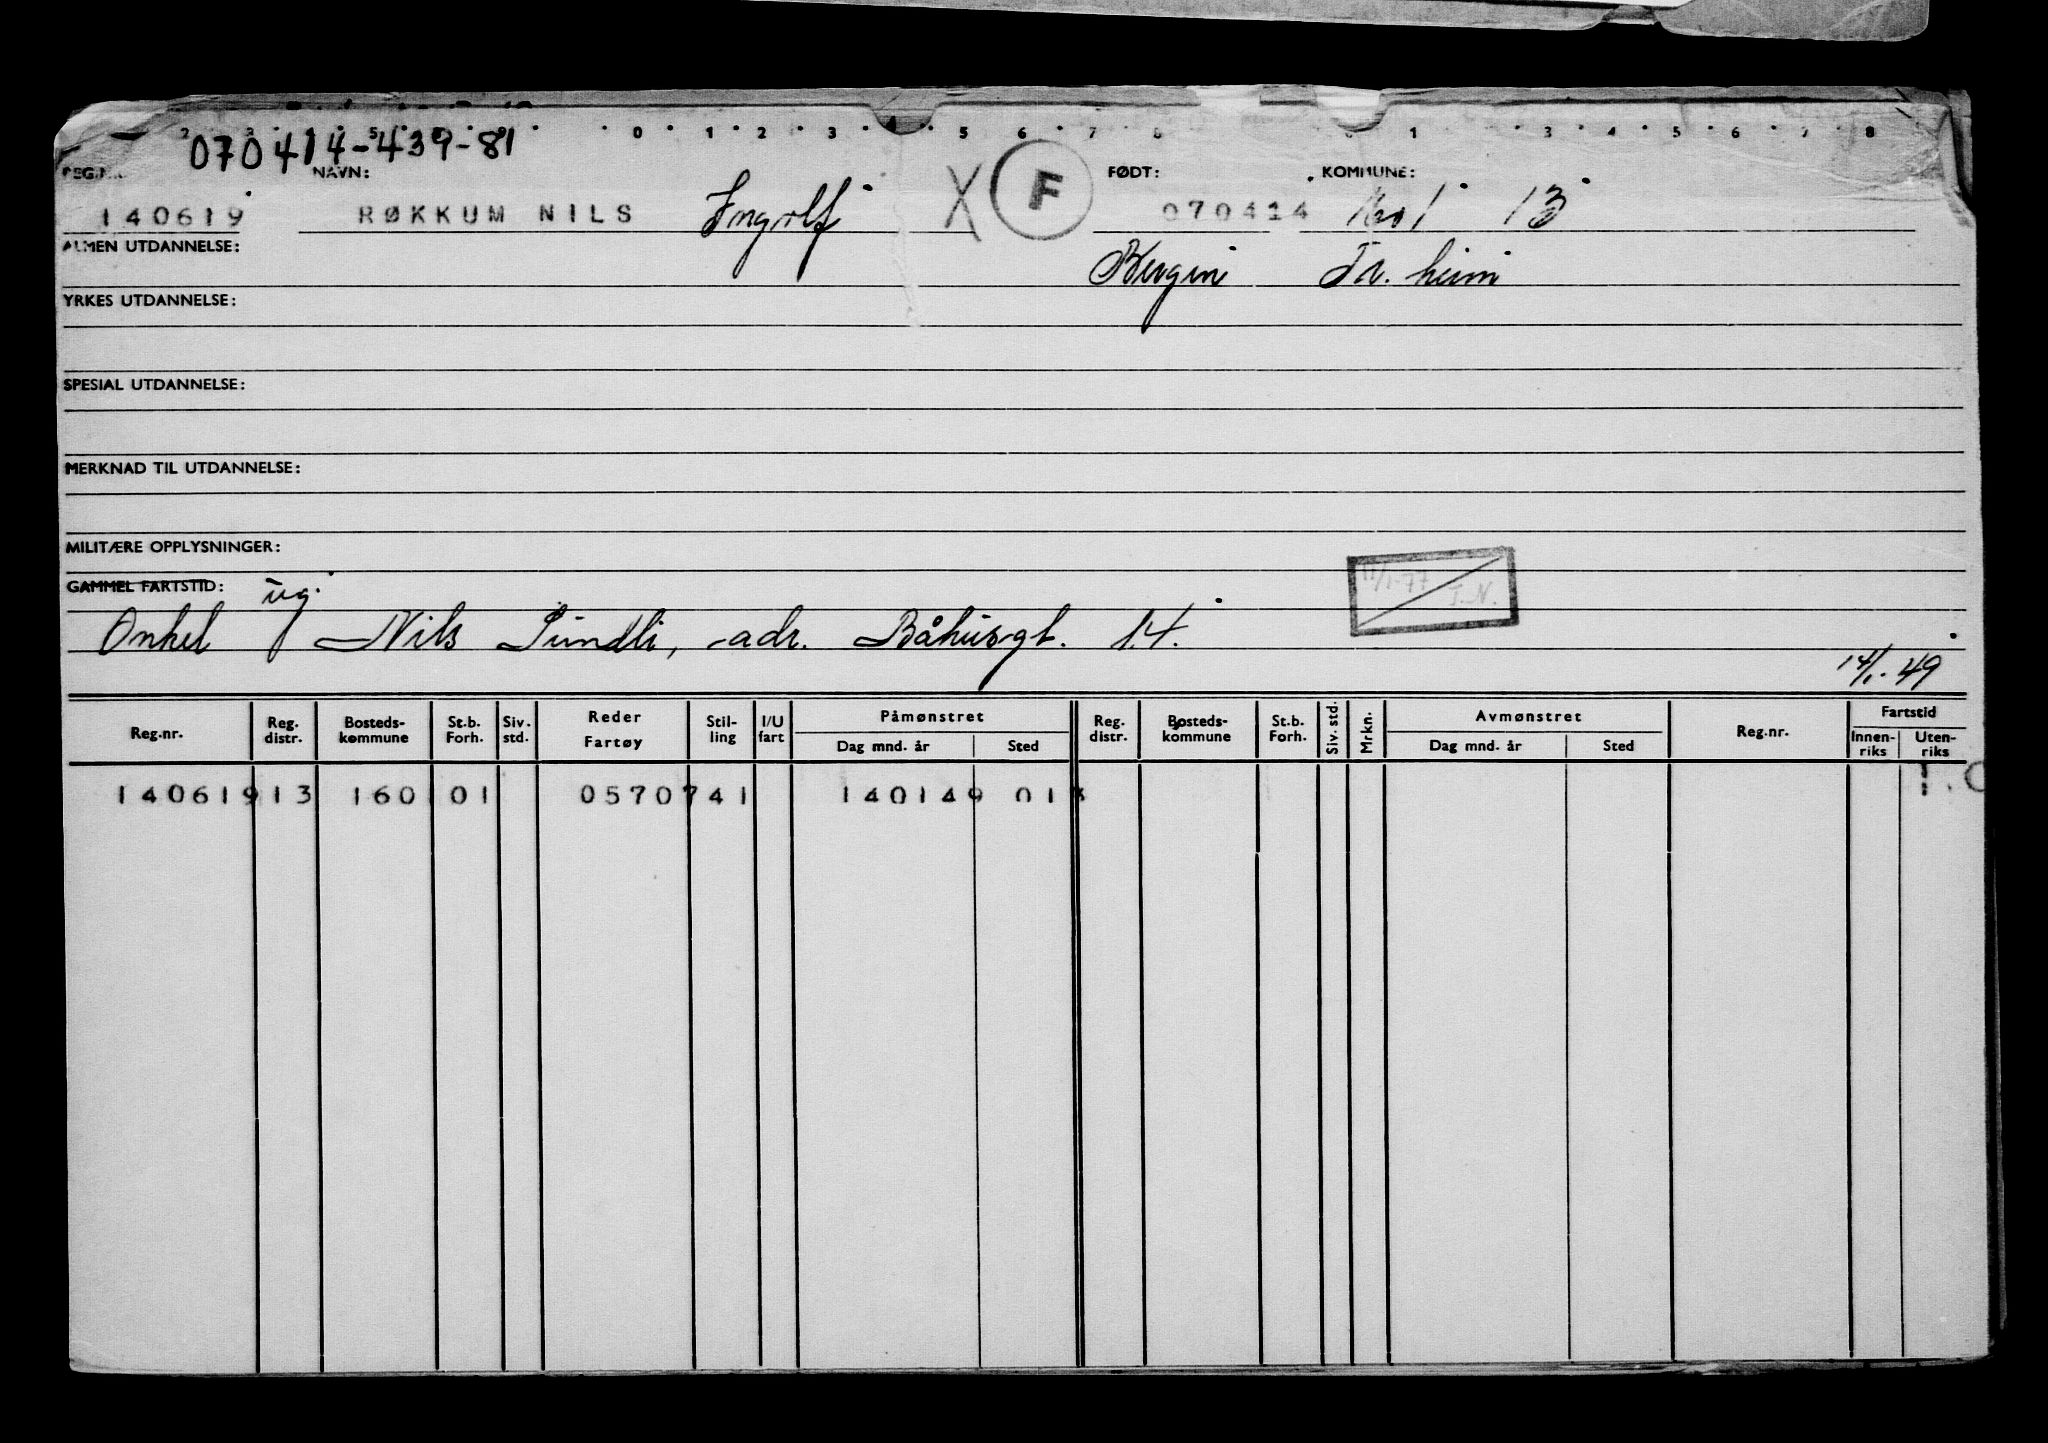 2 3 5 0 1 2 3 4 5 6 7 8 1 3 4 5 6 7 8
070414-439-81
REG.NR. NAVN: FØDT: KOMMUNE:
140619 RØKKUM NILS Ingolf X F 070414 1601 13
ALMEN UTDANNELSE: Bergen Tr.heim
YRKES UTDANNELSE:
SPESIAL UTDANNELSE:
MERKNAD TIL UTDANNELSE:
MILITÆRE OPPLYSNINGER:
GAMMEL FARTSTID: ug.
11/1-77 I.N.
Onkel Nils Sundli, adr. Båhusgt. 14.
14/1-49
Reg.nr. Reg. distr. Bosteds-kommune St.b. Forh. Siv. std. Reder Fartøy Stil-ling I/U fart Påmønstret Dag mnd. år Sted Reg. distr. Bosteds-kommune St.b. Forh. Siv. std. Mrkn. Avmønstret Dag mnd. år Sted Reg.nr. Fartstid Innen-riks Uten-riks
140619 13 1601 01 0570 741 140149 013